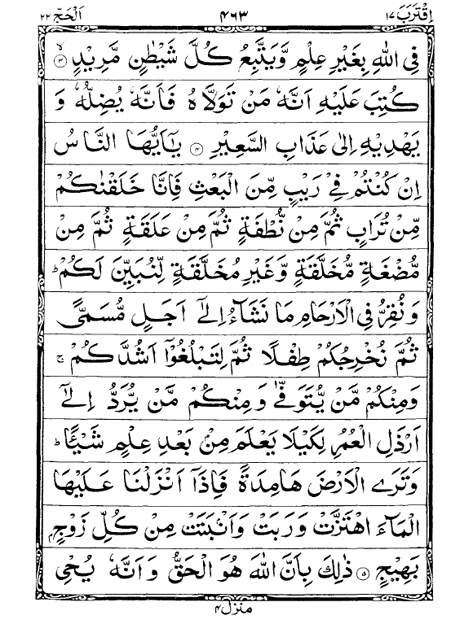 اِقْتَرَبَ ١٧ ٤٦٣ اَلْحَجّ ٢٢
فِی اللّٰهِ بِغَیْرِ عِلْمٍ وَّیَتَّبِعُ كُلَّ شَیْطٰنٍ مَّرِیْدٍ ۙ۝۳
كُتِبَ عَلَیْهِ اَنَّهٗ مَنْ تَوَلَّاهُ فَاَنَّهٗ یُضِلُّهٗ وَ
یَهْدِیْهِ اِلٰی عَذَابِ السَّعِیْرِ ۝۴ یٰۤاَیُّهَا النَّاسُ
اِنْ كُنْتُمْ فِیْ رَیْبٍ مِّنَ الْبَعْثِ فَاِنَّا خَلَقْنٰكُمْ
مِّنْ تُرَابٍ ثُمَّ مِنْ نُّطْفَةٍ ثُمَّ مِنْ عَلَقَةٍ ثُمَّ مِنْ
مُّضْغَةٍ مُّخَلَّقَةٍ وَّغَیْرِ مُخَلَّقَةٍ لِّنُبَیِّنَ لَكُمْ ؕ
وَنُقِرُّ فِی الْاَرْحَامِ مَا نَشَآءُ اِلٰۤی اَجَلٍ مُّسَمًّی
ثُمَّ نُخْرِجُكُمْ طِفْلًا ثُمَّ لِتَبْلُغُوْۤا اَشُدَّكُمْ ۚ
وَمِنْكُمْ مَّنْ یُّتَوَفّٰی وَمِنْكُمْ مَّنْ یُّرَدُّ اِلٰۤی
اَرْذَلِ الْعُمُرِ لِكَیْلَا یَعْلَمَ مِنْۢ بَعْدِ عِلْمٍ شَیْـًٔا ؕ
وَتَرَی الْاَرْضَ هَامِدَةً فَاِذَاۤ اَنْزَلْنَا عَلَیْهَا
الْمَآءَ اهْتَزَّتْ وَرَبَتْ وَاَنْۢبَتَتْ مِنْ كُلِّ زَوْجٍۭ
بَهِیْجٍ ۝۵ ذٰلِكَ بِاَنَّ اللّٰهَ هُوَ الْحَقُّ وَاَنَّهٗ یُحْیِ
منزل ۴